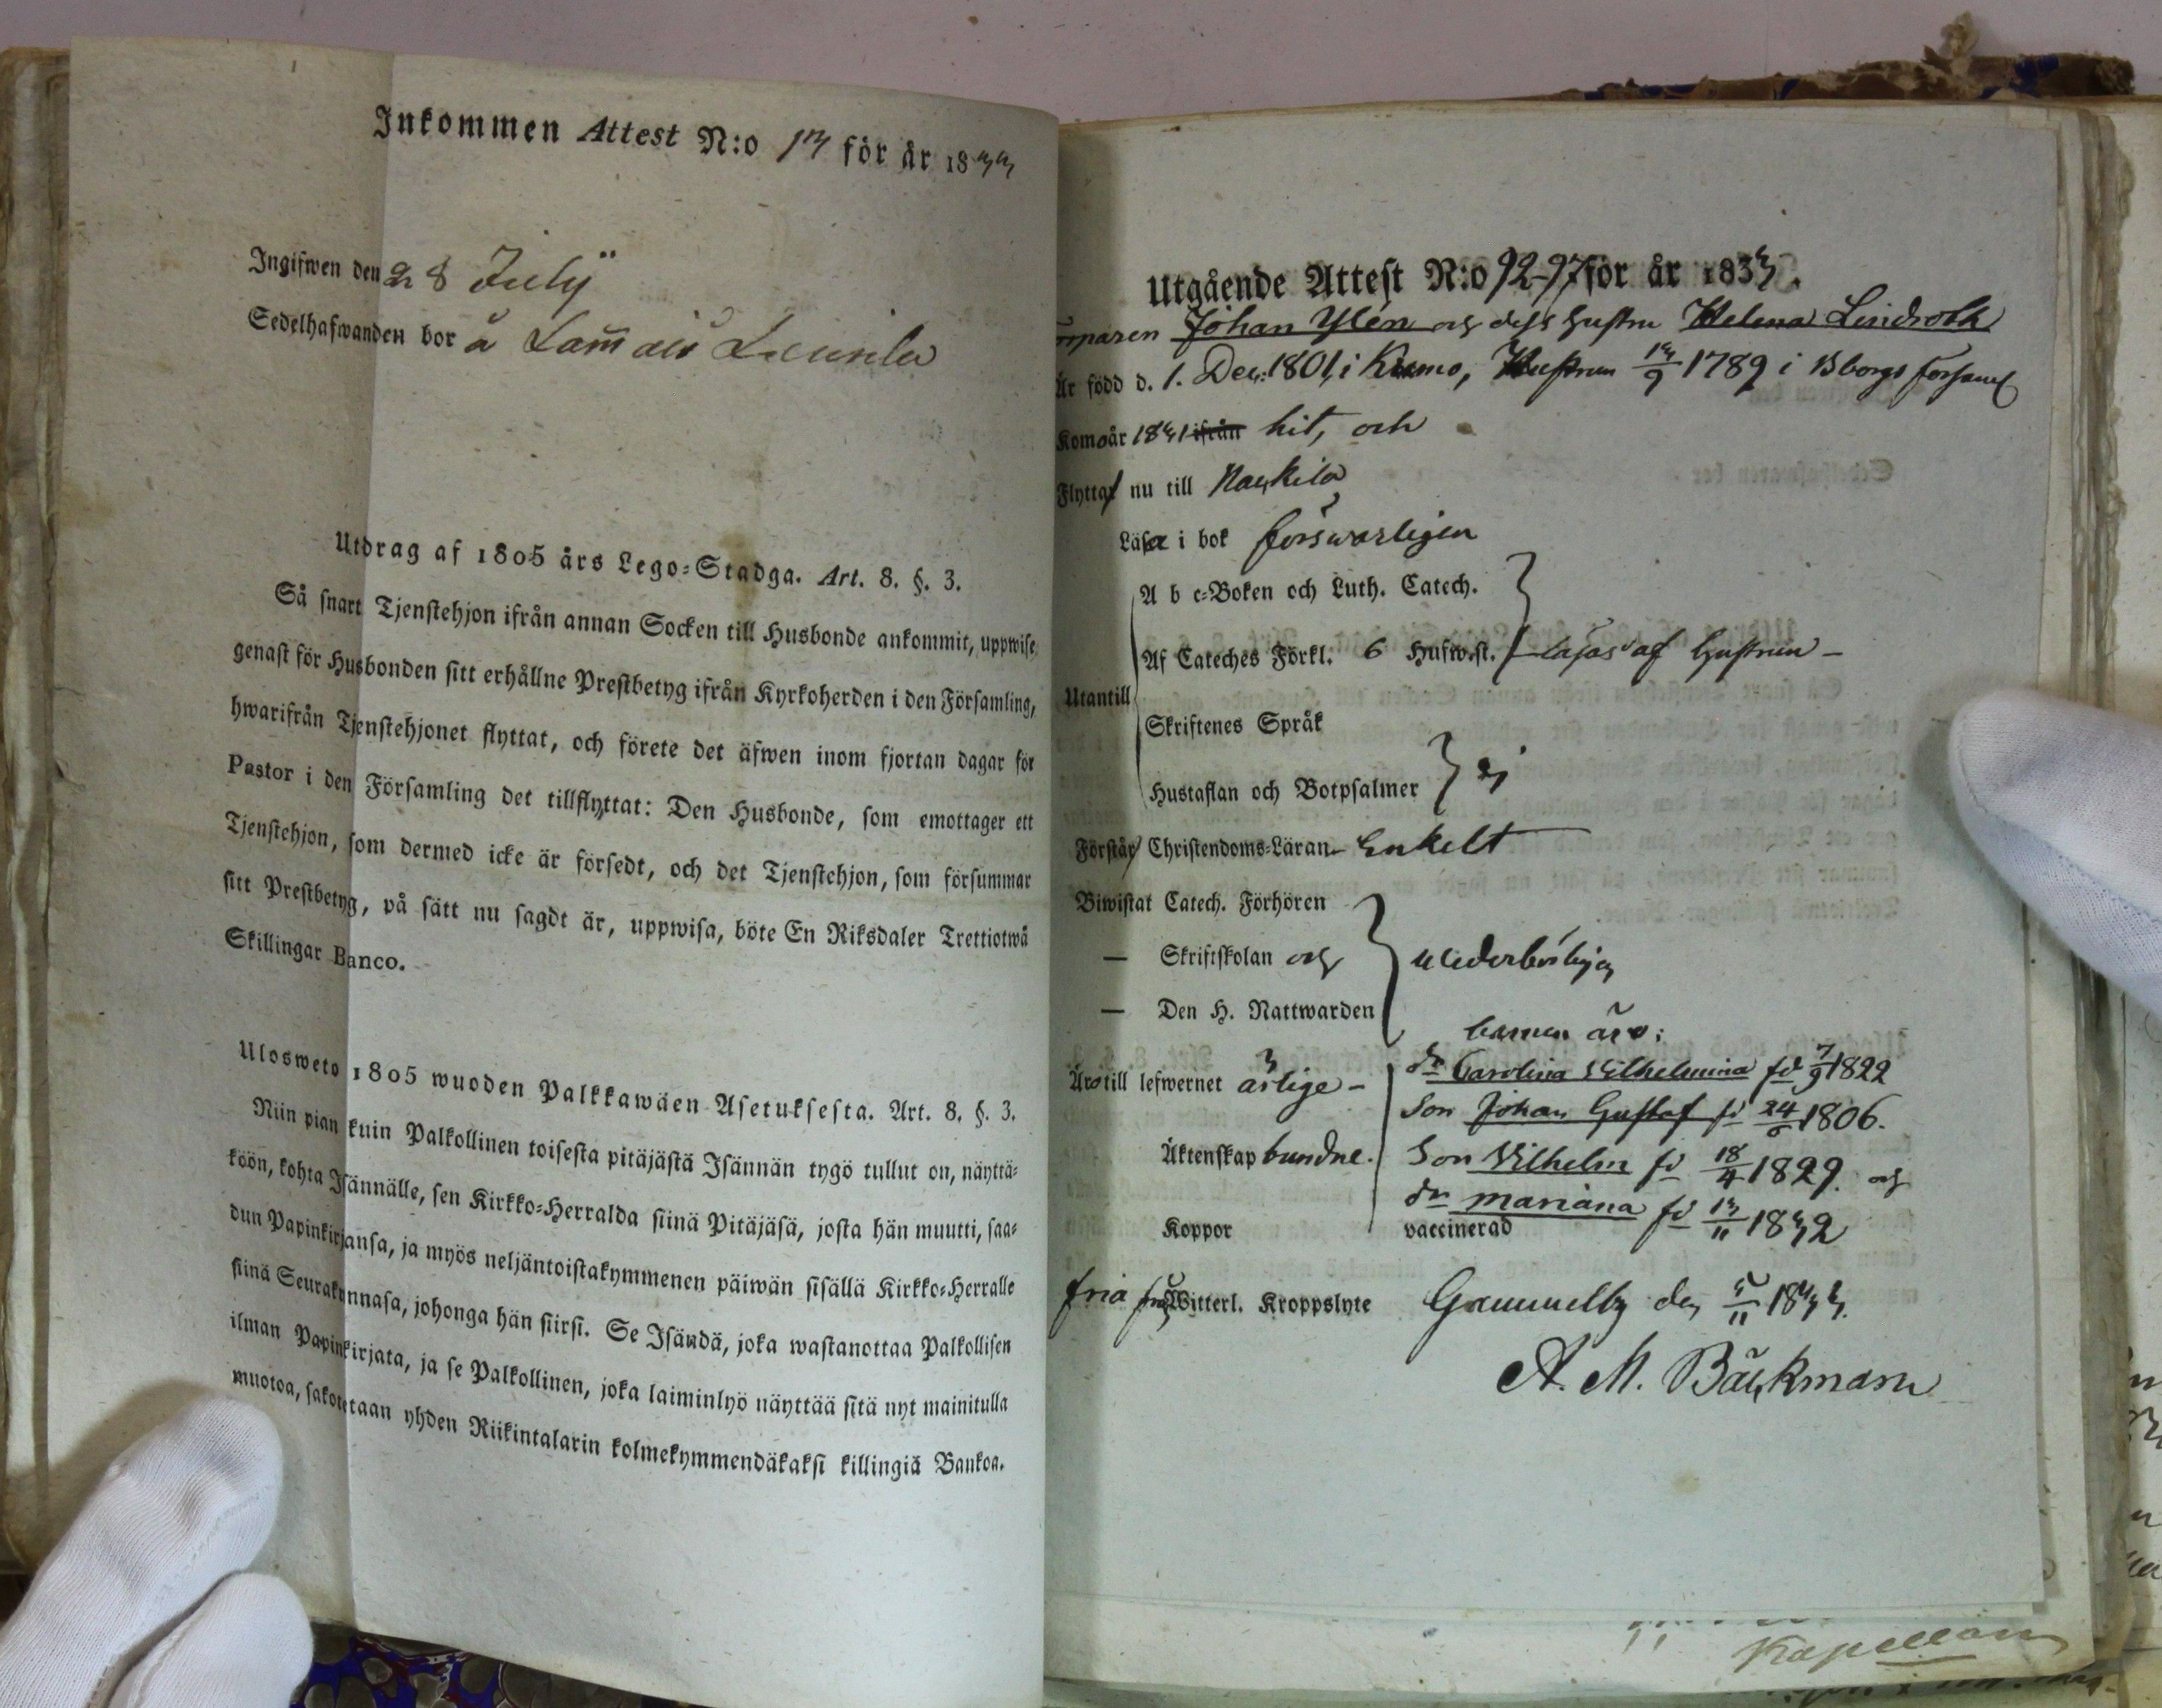 Inkommen Attest N:o 13 för år 1833
Ingifwen den 28 Julÿ
Sedelhafwanden bor å
Utdrag af 1805 års Lego-Stadga. Art. 8. §. 3.
Så snart Tjenstehjon ifrån annan Socken till Husbonde ankommit, uppwise
genast för Husbonden sitt erhållne Prestbetyg ifrån Kyrkoherden i den Församling,
hwarifrån Tjenstehjonet flyttat, och förete det äfwen inom fjortan dagar för
Pastor i den Församling det tillflyttat: Den Husbonde, som emottager ett
Tjenstehjon, som dermed icke är försedt, och det Tjenstehjon, som försummar
sitt Prestbetyg, på sätt nu sagdt är, uppwisa, böte En Riksdaler Trettiotwå
Skillingar Banco.
Ulosweto 1805 wuoden Palkkawäen Asetuksesta. Art. 8. §. 3.
Niin pian kuin Palkollinen toisesta pitäjästä Isännän tygö tullut on, näyttä-
köön, kohta Isännälle, sen Kirkko-Herralda siinä Pitäjäsä, josta hän muutti, saa-
dun Papinkirjansa, ja myös neljäntoistakymmenen päiwän sisällä Kirkko-Herralle
siinä Seurakunnasa, johonga hän siirsi. Se Isändä, joka wastanottaa Palkollisen
ilman Papinkirjata, ja se Palkollinen, joka laiminlyö näyttää sitä nyt mainitulla
muotoa, sakotetaan yhden Riikintalarin kolmekymmendäkaksi killingiä Bankoa.
Utgående Attest N:o 92-97 för år 1833.
Johan Ylén och dess hustru Helena Lindroth
Är född d. 1. Dec: 1801 i Kumo, Hustrun 13/9 1789 i Bborgs församl
Komo år 1831 ifrån hit, och
Flytta nu till Nackila
Läsa i bok förswarligen
A b c-Boken och Luth. Catech.
Af Cateches Förkl. 6 Hufwst. läsas af hustrun -
Utantill
Skriftenes Språk
Hustaflan och Botpsalmer ej
Förstår Christendoms-Läran Enkelt
Biwistat Catech. Förhören
— Skriftskolan och wederbörligen
— Den H. Nattwarden
barnen äro:
Äro till lefwernet ärlige - dr Carolina Wilhelmina fd 7/9 1822
Son Johan Gustaf fd 24/6 1806.
Äktenskap bundne. Son Wilhelm fd 18/4 1829. och
dr Mariana fd 13/11 1832
Koppor vaccinerad
fria från Witterl. Kroppslyte Gammelby den 5/11 1833.
A. M. Bäckman
Kapellan